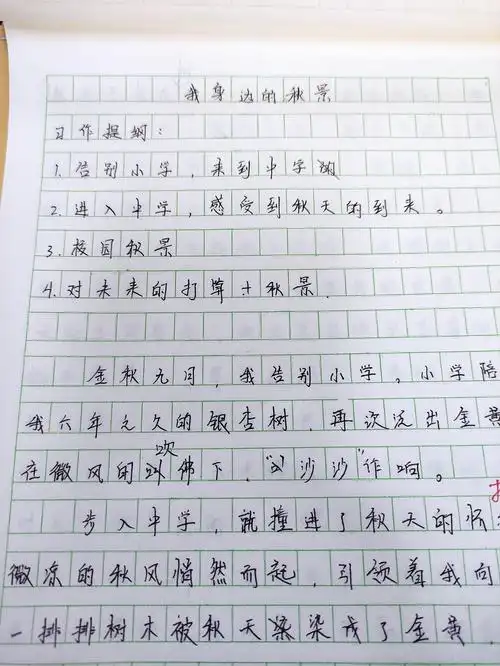 我身边的秋景
习作提纲：
1.告别小学，来到中学
2.进入中学，感受到秋天的到来。
3.校园秋景
4.对未来的打算+秋景.
金秋九月，我告别小学。小学陪
我六年之久的银杏树，再次泛出金黄
在微风的吹佛下，“沙沙”作响。
步入中学，就撞进了秋天的怀
微凉的秋风悄然而起，引领着我向
一排排树木被秋天染成了金黄，